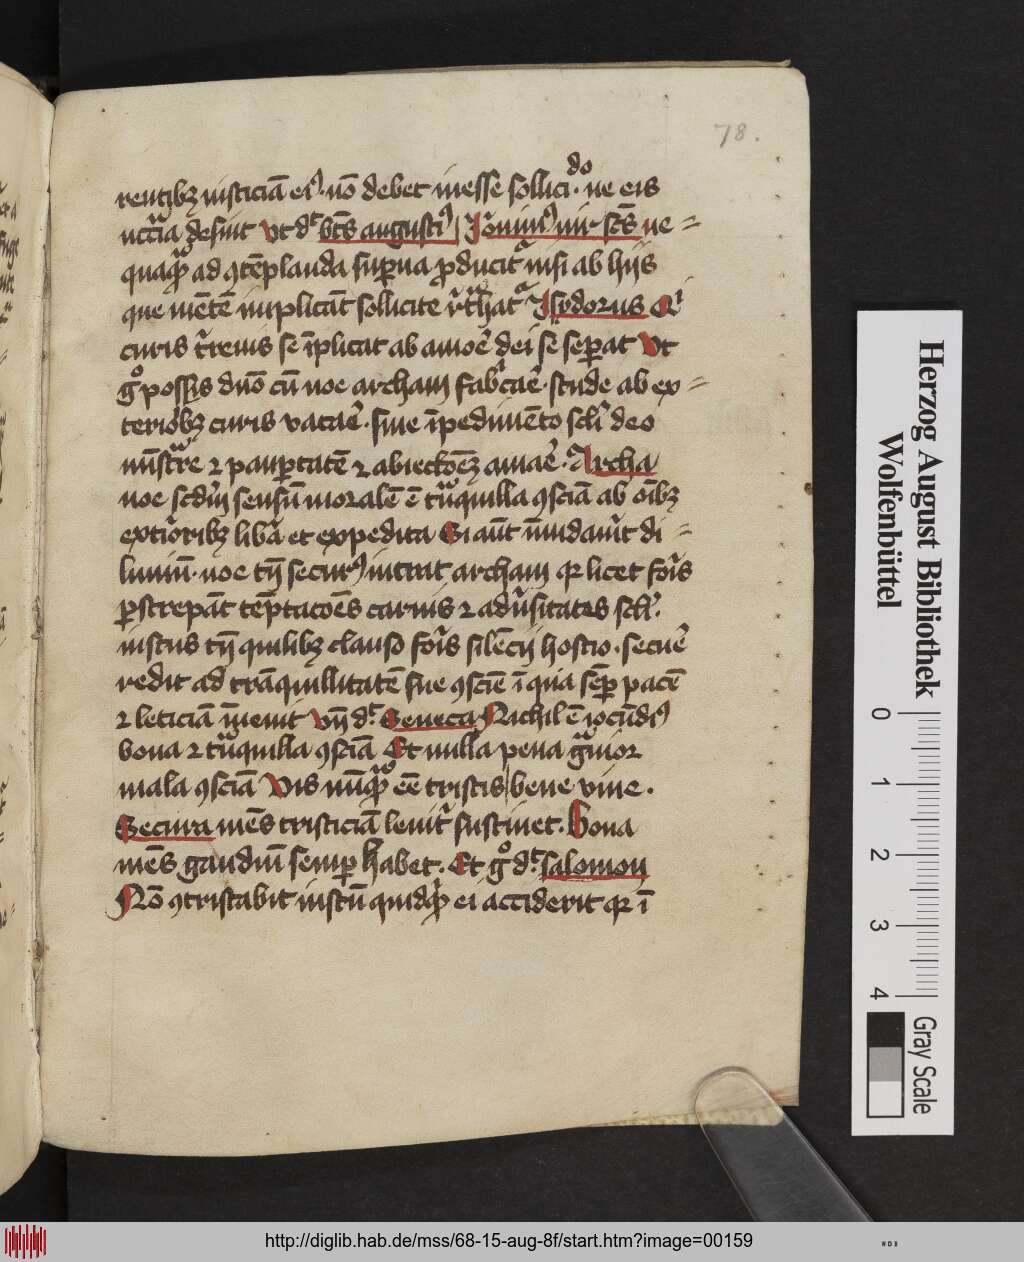 78.
rentibꝫ iusticiā eiꝰ. nō debet inesse sollicido. ne eis
nccͥia desint Vt dͨt btͥs augustiꝰ Iouiniꝰ vir sctͥs ne⸗
quaqͣꝫ ad ꝯtēplanda suꝑna ꝓducitͬ nisi ab hijs
que mētē implicāt sollicite Isydorus Qͥ
curis tͬrenis sē īplicat ab amoē dei sē seꝑat Vt
gͦ possis duō cū noe archam fabͥcaē. stude ab ex⸗
terioͥbꝫ curis vacaē. siue īpedimēto scłi deo
mīstͬre ⁊ pauꝑtatē ⁊ abiectōeꝫ amaē. Archa
noe scdm̄ sensū moralē ē tͬnquilla ꝯsciā ab oībꝫ
extͥoribꝫ libͣa et expedita Si aūt īnudauͥt di⸗
luuiū. noe tn̄ securꝰ intrat archam qꝛ licet foͥs
ꝑstrepāt tēptacōes carnis ⁊ adūsitates scłi.
iustus tn̄ quilibꝫ clauso foͥs silēcij hostio. secuē
redit ad trāquillitatē sue ꝯsciē ī qua semꝑ pacē
⁊ leticiā īuenit Vn̄ dͨt Seneca Nichil ē iocūdiꝰ
bona ⁊ tͬnquilla ꝯsciā Et nulla pena gͣuior
mala ꝯsciā Vis nūqͣꝫ eē tristis bene viue.
Secura mēs tristiciā leuitͬ sustinet. Bona
mēs gaudiū semꝑ habet. Et gͦ dͨt salomon
Nō ꝯtristabit iustū quidqͥꝫ ei acciderit qꝛ ī
Herzog August Bibliothek
Wolfenbüttel
0 1 2 3 4
Gray Scale
http://diglib.hab.de/mss/68-15-aug-8f/start.htm?image=00159
WDB